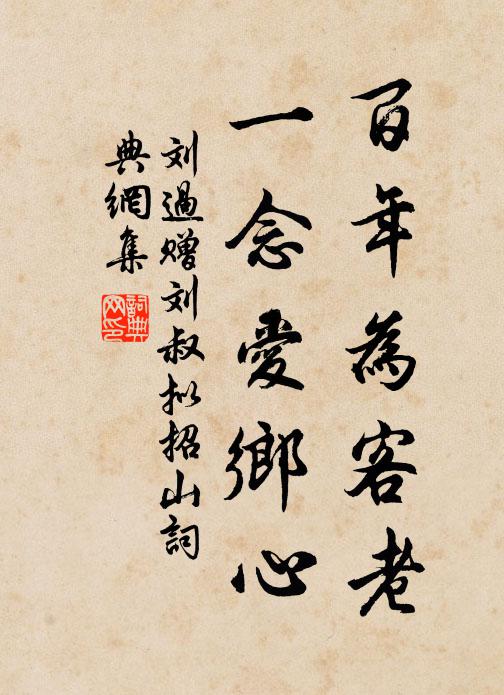 百年為客老
一念愛鄉心
刘過贈刘叔拟招山詞
典網集
詞典网印